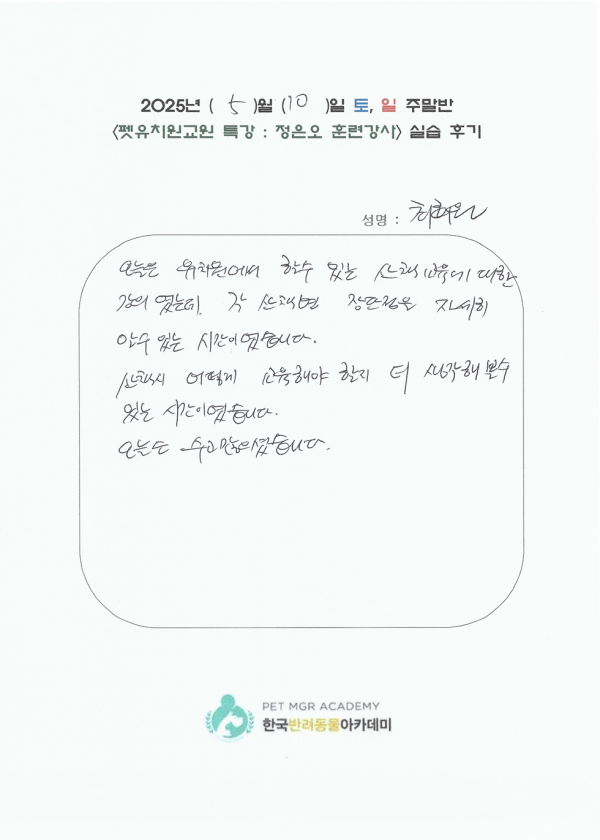 2025년 ( 5 )월 (10 )일 토, 일 주말반
<펫유치원교원 특강 : 정은오 훈련강사> 실습 후기
성명 :
오늘은 유치원에서 할수 있는 산책교육에 대한
강의 였는데. 각 산책의 장단점을 자세히
알수 있는 시간이였습니다.
산책시 어떻게 교육해야 할지 더 생각해 볼수
있는 시간이였습니다.
오늘도 수고많으셨습니다.
PET MGR ACADEMY
한국반려동물아카데미